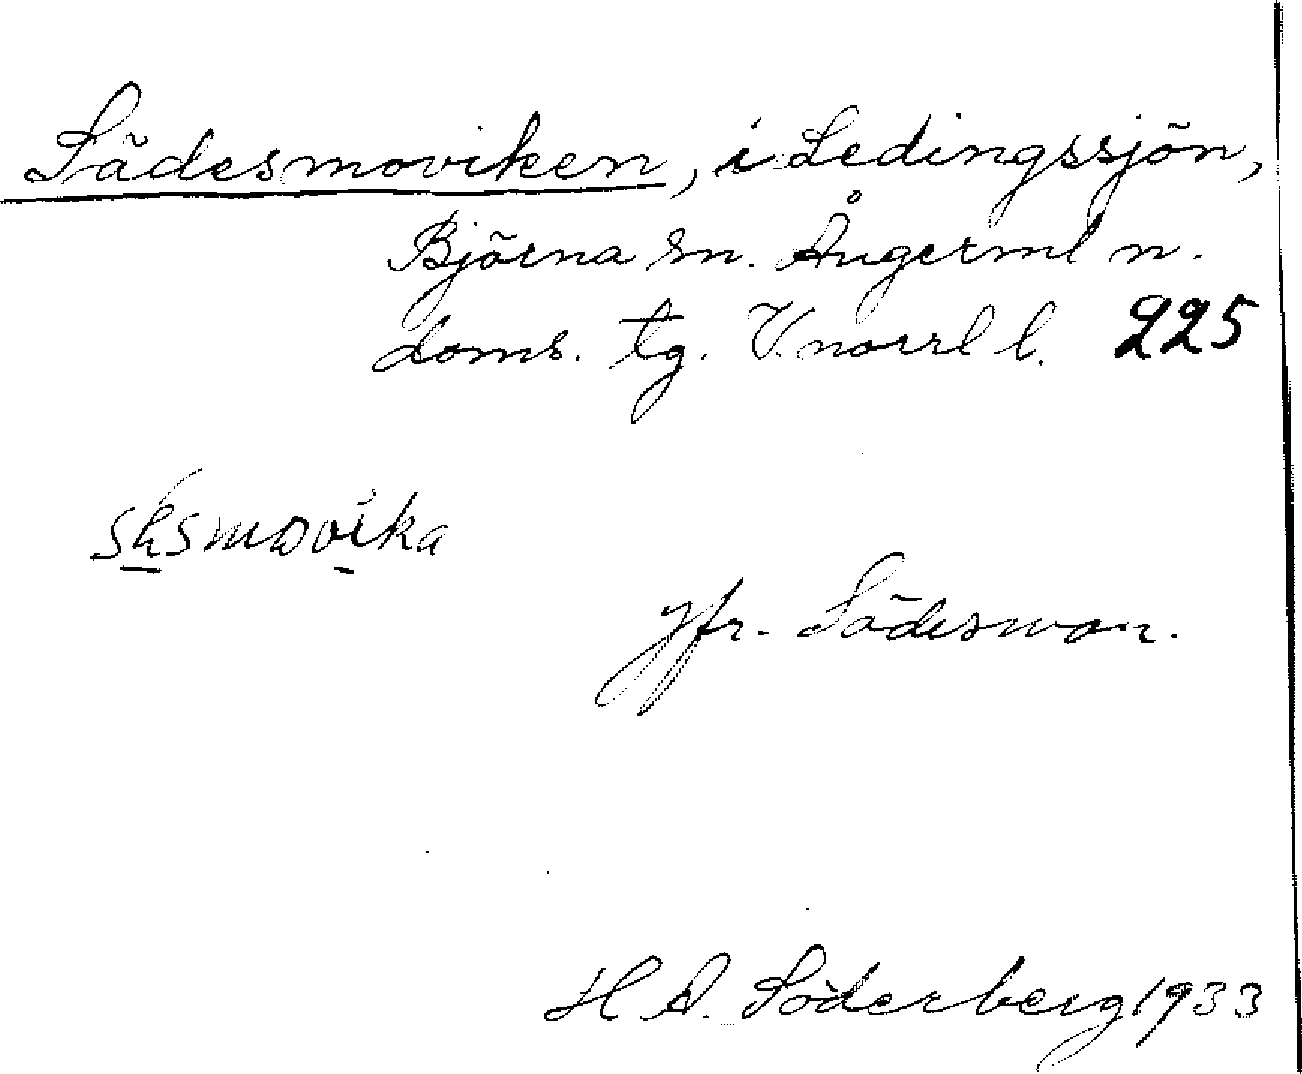 Sädesmoviken, i Ledingssjön,
Björna sn. Ångerml n.
doms. tg. V. norrl l. 225
Jfr. Sädesmon.
H A. Söderberg 1933